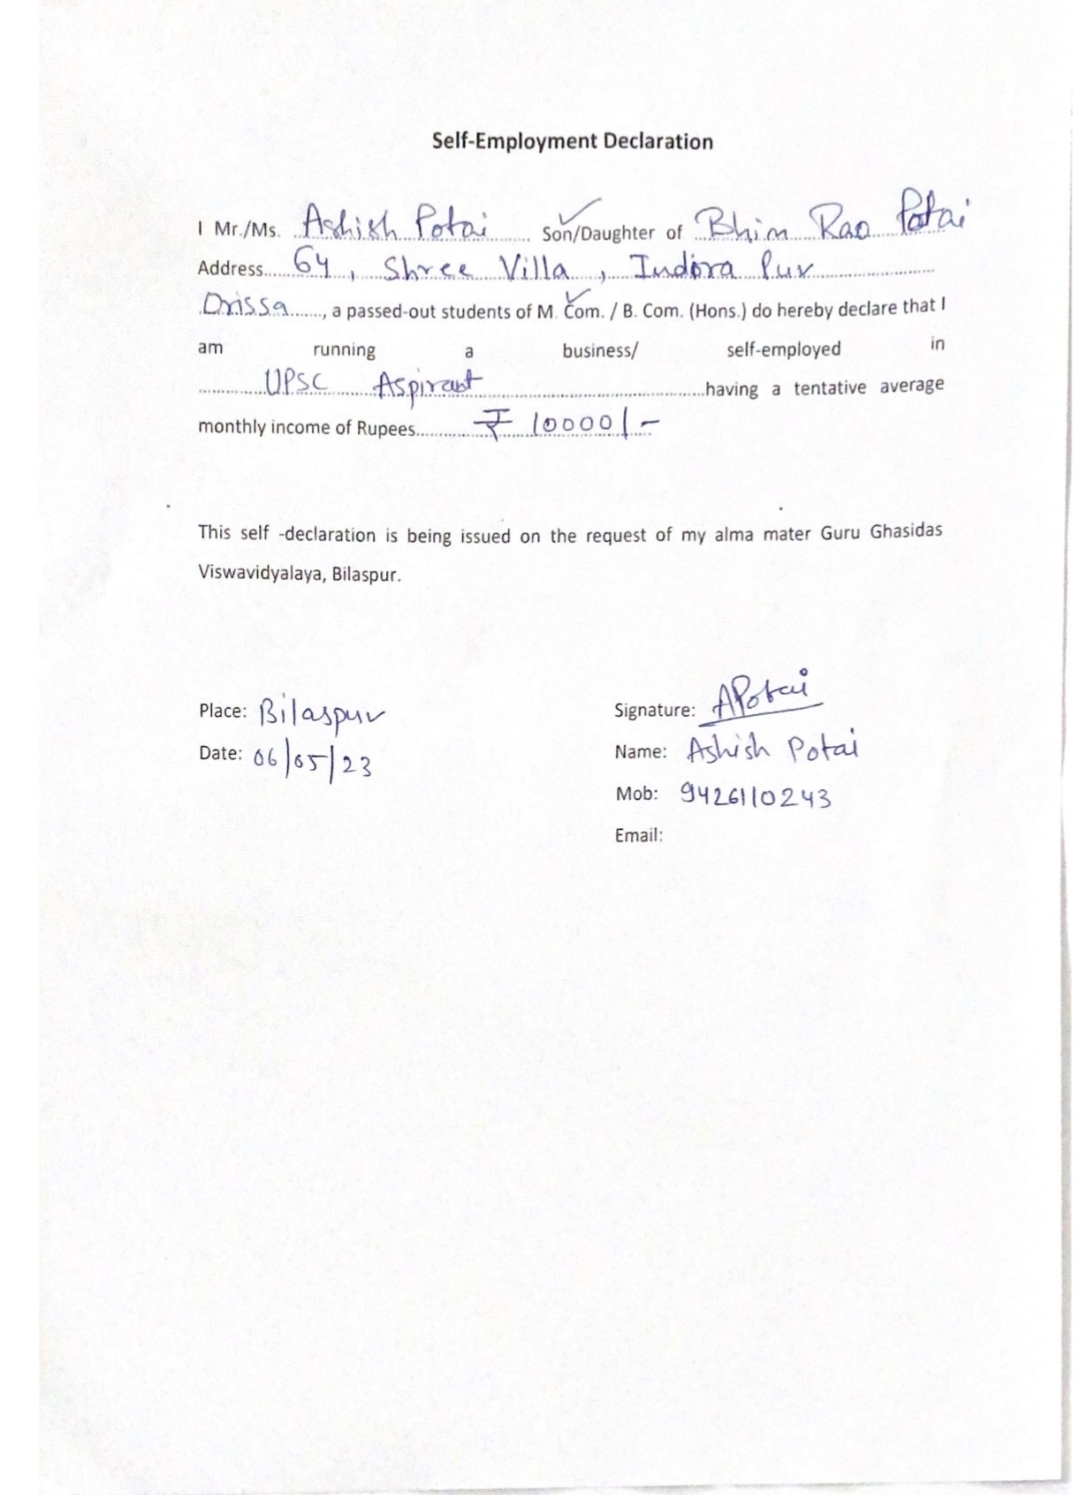 Self-Employment Declaration
I Mr./Ms. Ashish Potai Son/Daughter of Bhim Rao Potai
Address 64, Shree Villa, Indora Pur
Orissa, a passed-out students of M. Com. / B. Com. (Hons.) do hereby declare that I
am running a business/ self-employed in
UPSC Aspirant having a tentative average
monthly income of Rupees ₹ 10000/-
This self -declaration is being issued on the request of my alma mater Guru Ghasidas
Viswavidyalaya, Bilaspur.
Place: Bilaspur
Date: 06/05/23
Signature: APotai
Name: Ashish Potai
Mob: 9426110243
Email: